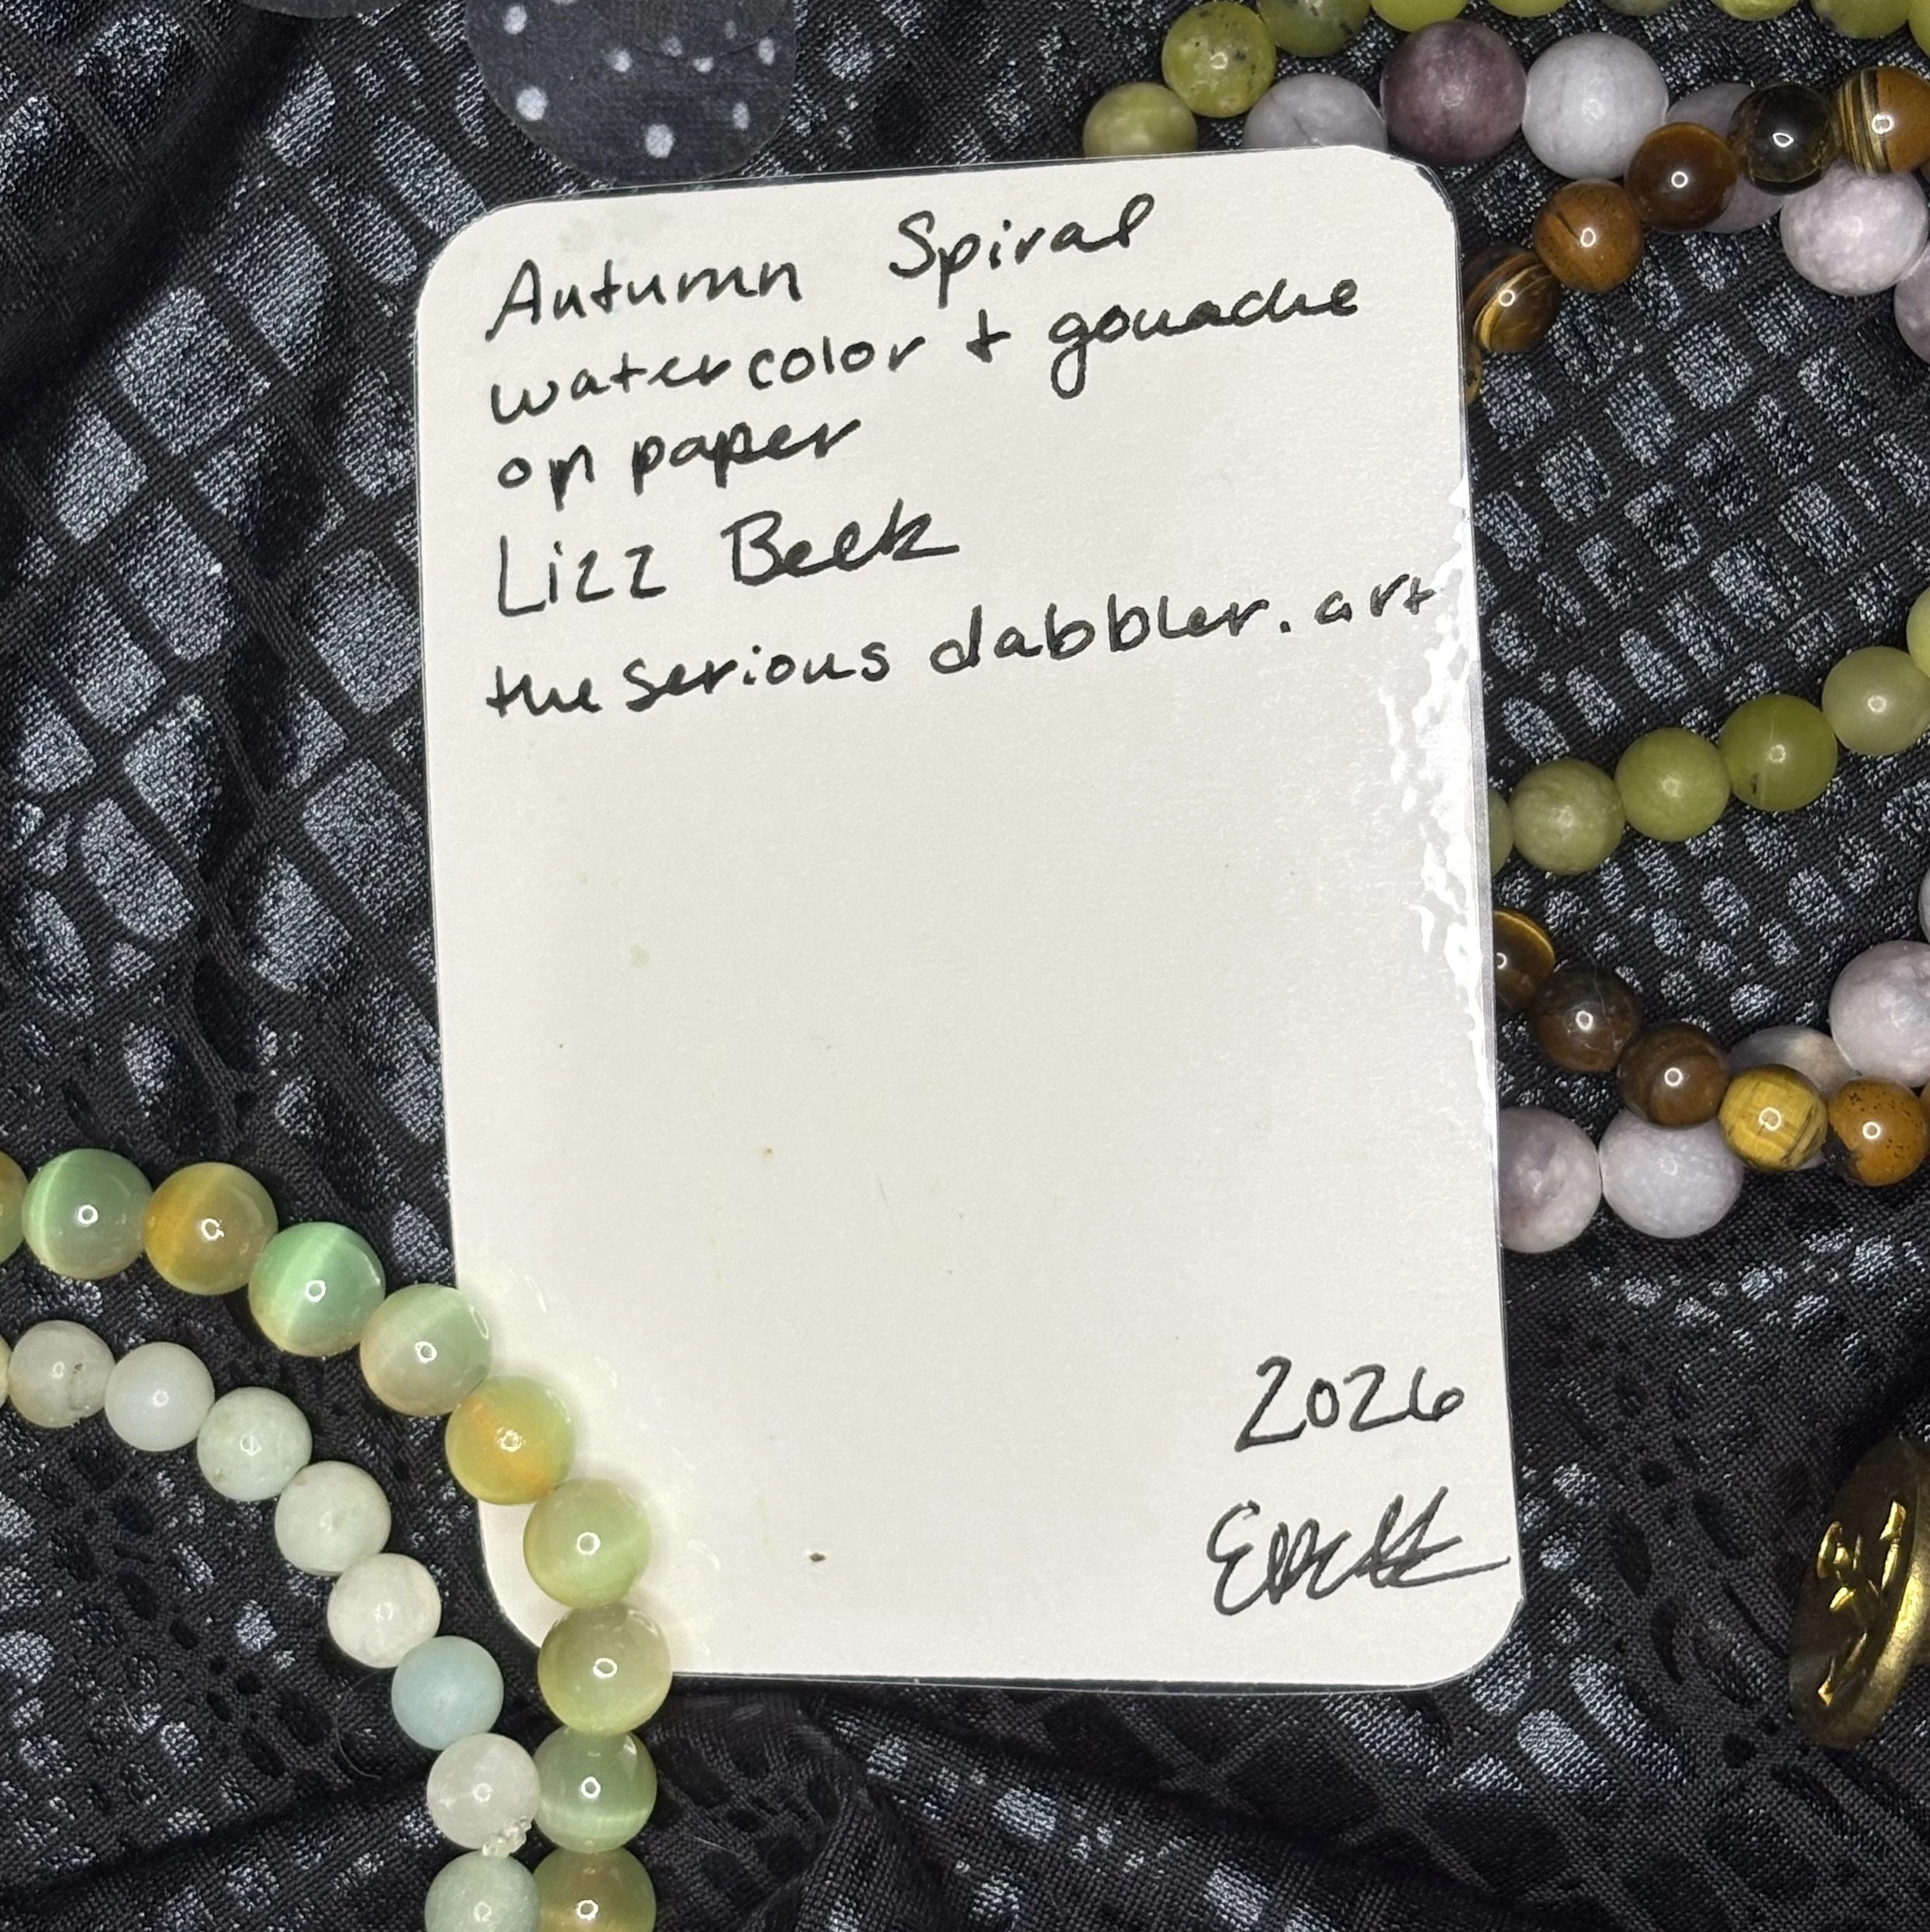 Autumn Spiral
watercolor + gouache
on paper
Lizz Beck
the serious dabbler.art
2026